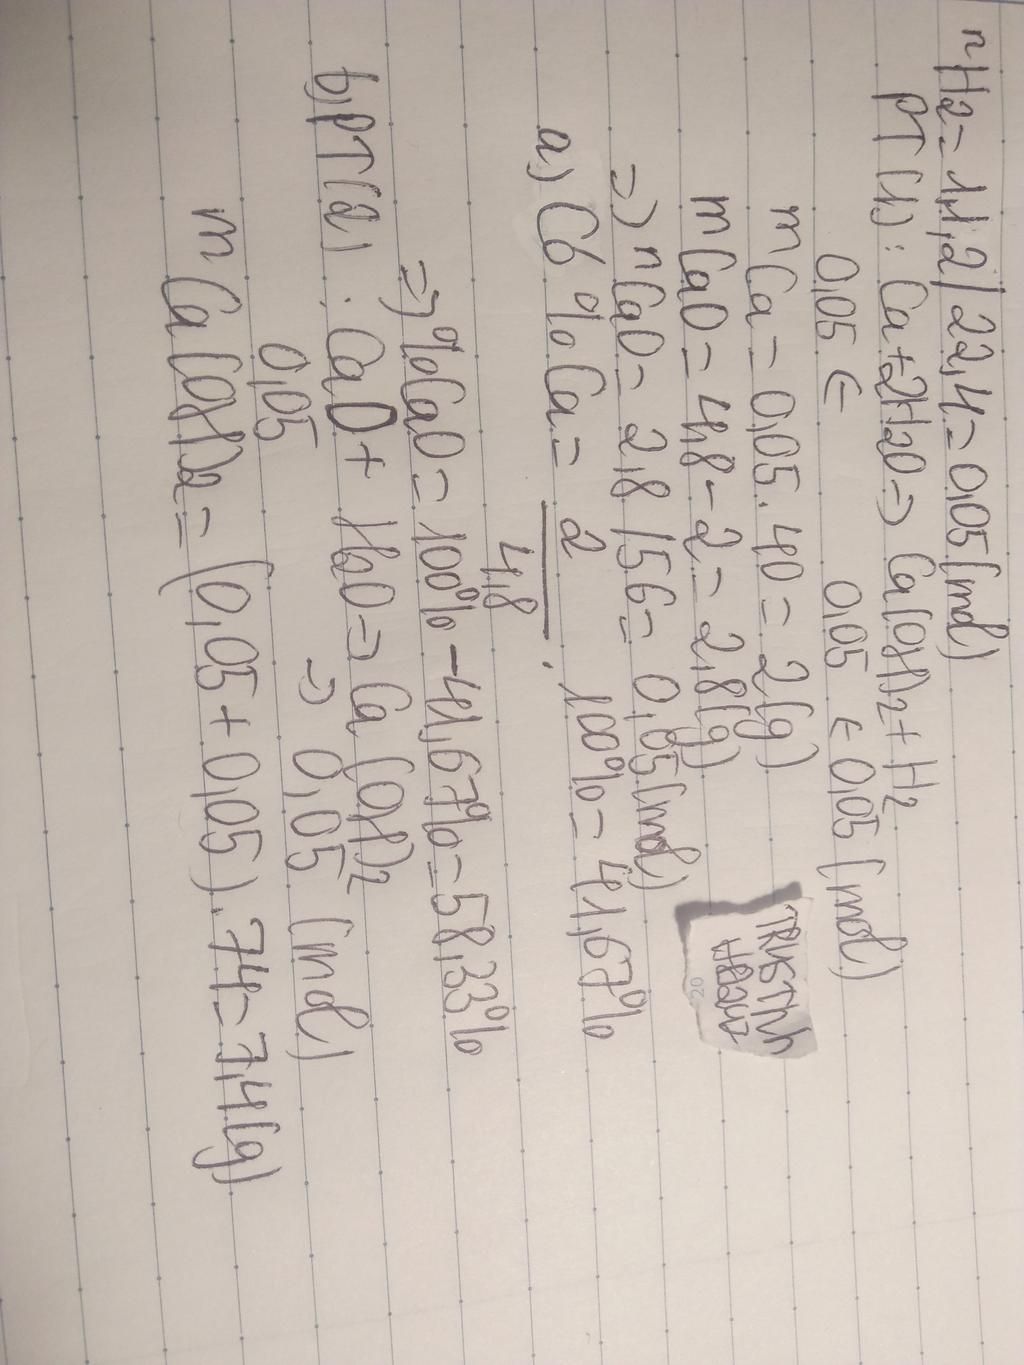 nH2 = 1,1,2/22,4 = 0,05(mol)
PT (1): Ca + 2H2O => Ca(OH)2 + H2
0,05 ← 0,05 ← 0,05 (mol)
mCa = 0,05.40 = 2(g)
mCaO = 4,8 - 2 = 2,8(g)
=> nCaO = 2,8/56 = 0,05(mol)
a) Có %Ca = 2/4,8 . 100% = 41,67%
=> %CaO = 100% - 41,67% = 58,33%
b, PT (2): CaO + H2O => Ca(OH)2
0,05 => 0,05 (mol)
mCa(OH)2 = (0,05 + 0,05).74 = 7,4(g)
20